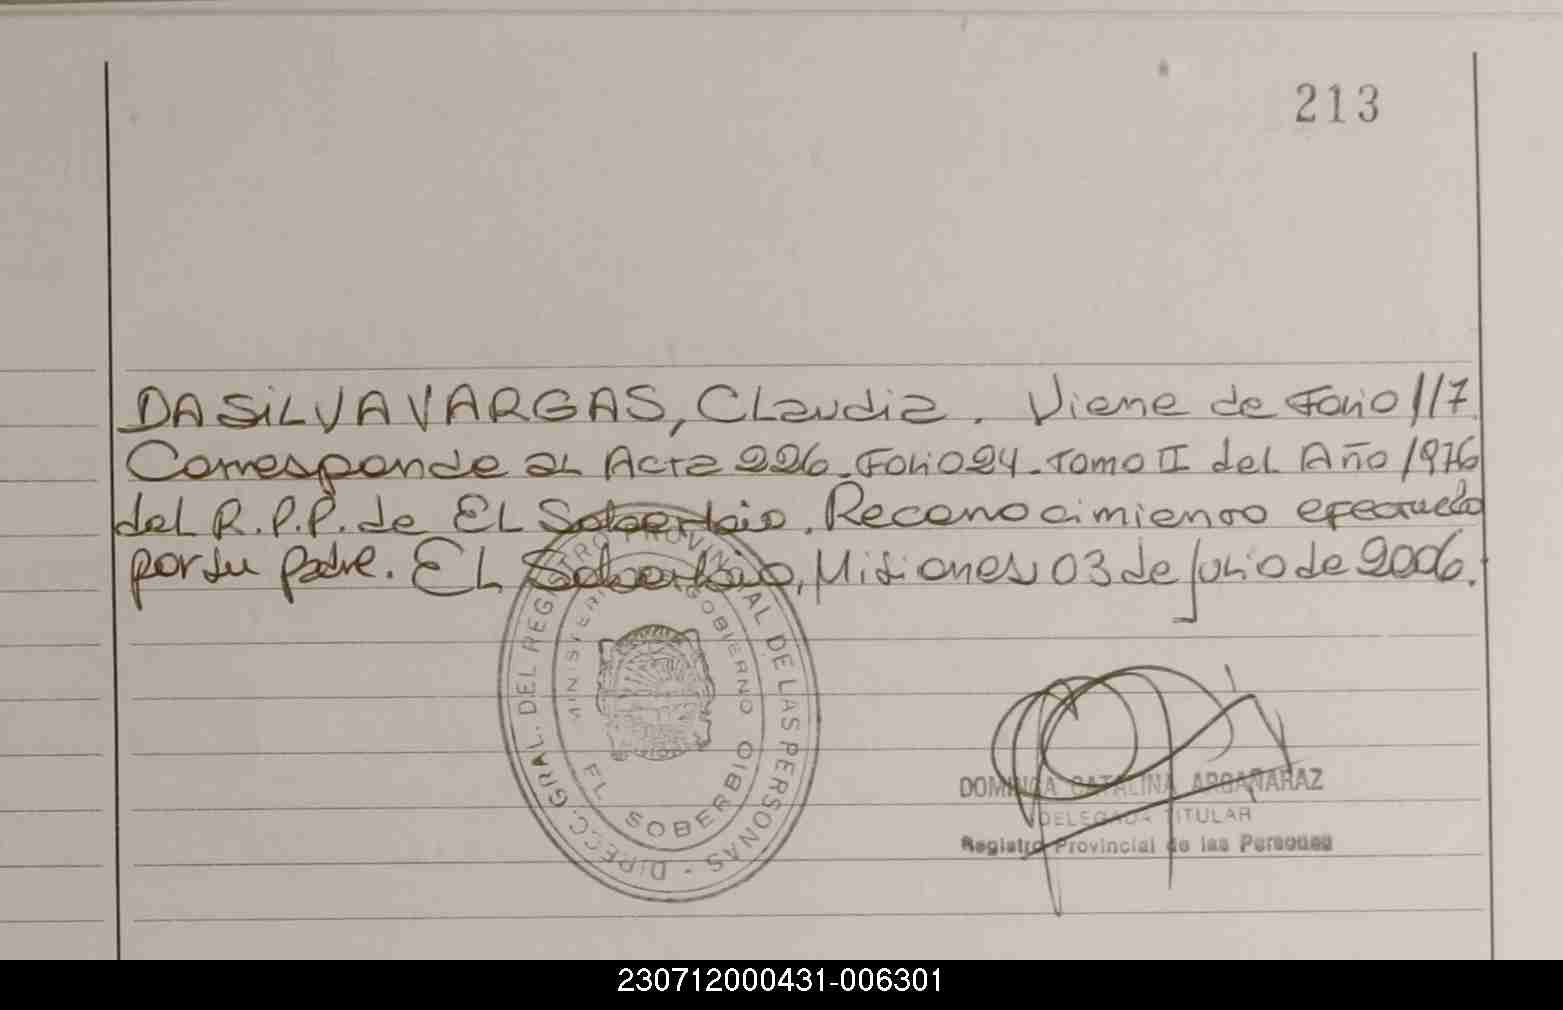 213
DA SILVA VARGAS, Claudia. Viene de Folio 117
Corresponde al Acta 226. Folio 24. Tomo II del Año 1976
del R.P.P. de El Soberbio. Reconocimiento efectuado
por su padre. El Soberbio, Misiones 03 de julio de 2006.
DIRECC. GRAL. DEL REGISTRO PROVINCIAL DE LAS PERSONAS -
MINISTERIO GOBIERNO
EL SOBERBIO
DOMINGA CATALINA ARGAÑARAZ
DELEGADA TITULAR
Registro Provincial de las Personas
230712000431-006301